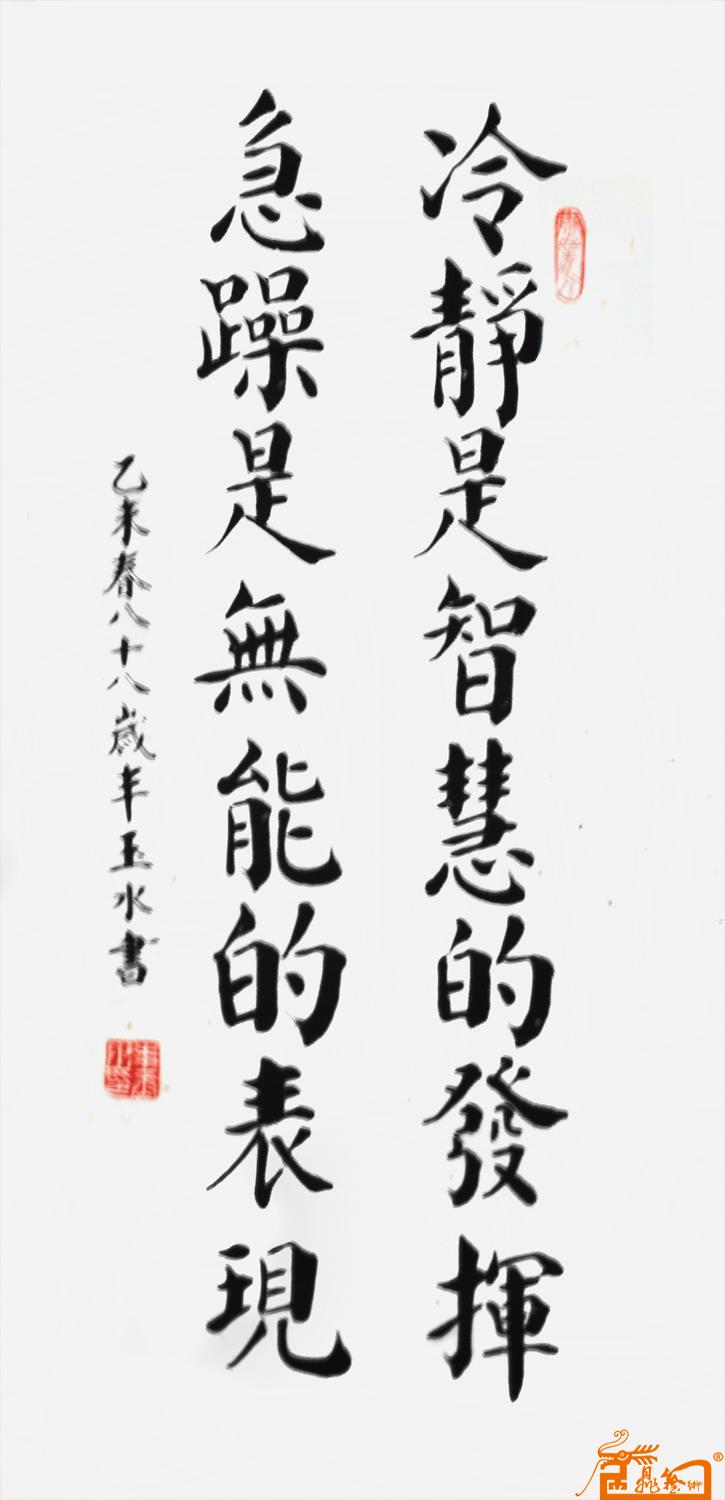 冷靜是智慧的發揮
急躁是無能的表現
乙未春八十八歲羊玉水書